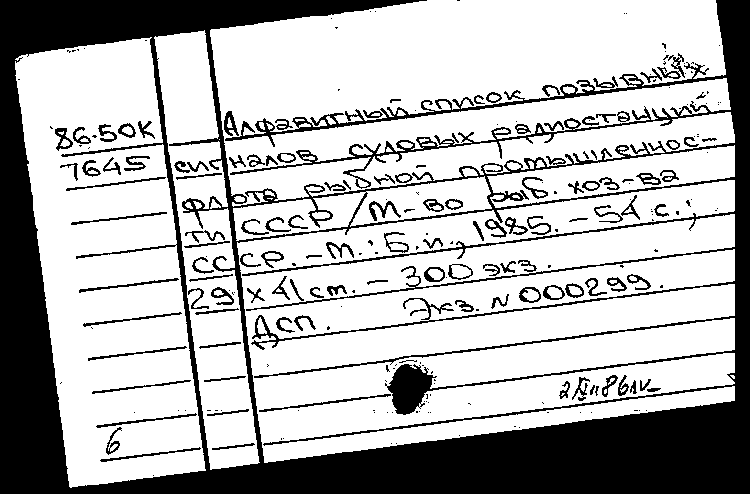 86-50К Алфавитный список позывных
7645 сигналов судовых радиостанций
флота рыбной промышленнос-
ти СССР / М-во рыб. хоз-ва
СССР. - М.: Б.и., 1985. - 54 с.;
29 x 41 cm. - 300 экз.
ДСП. Экз. N 000299.
6